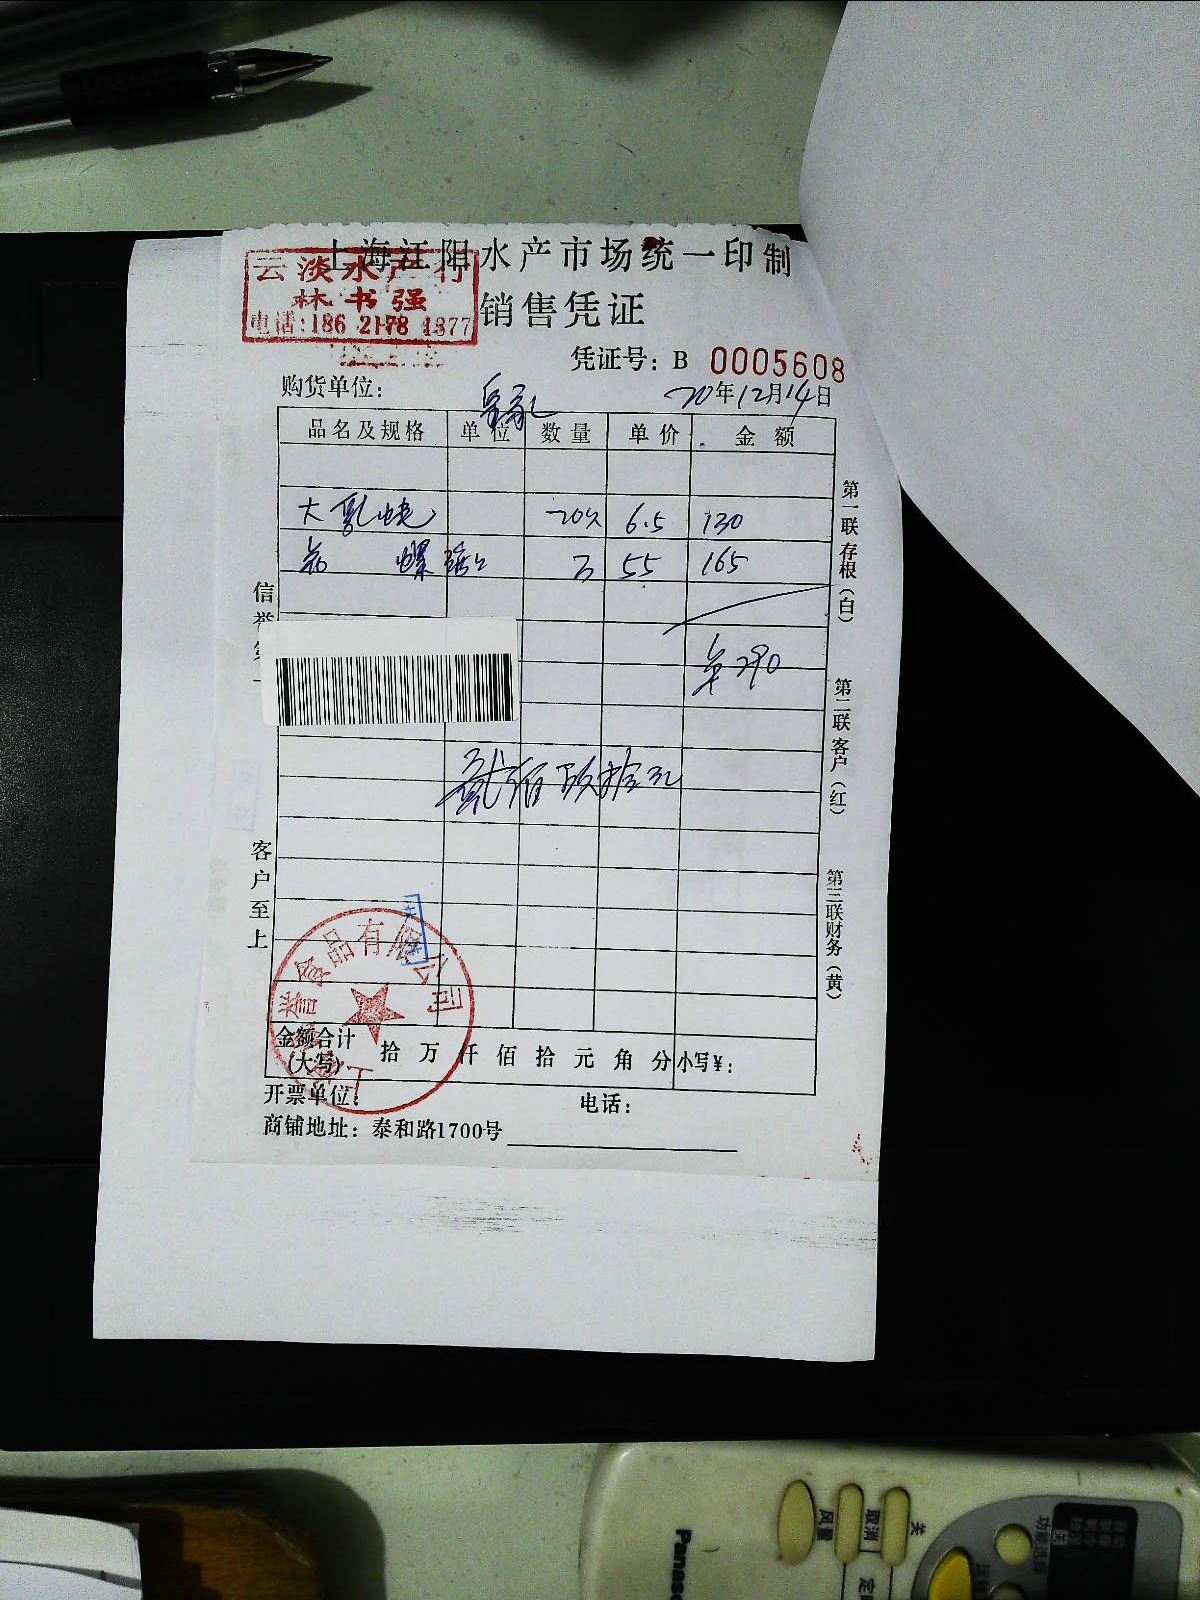 上海江阳水产市场统一印制
云淡水产行
林书强
电话:186 2178 1377
销售凭证
凭证号: B 0005608
购货单位:
20年12月14日
品名及规格 单位 数量 单价 金额
大 20 6.5 130
螺 3 55 165
290
贰佰玖拾元
信誉第一
客户至上
第一联存根(白)
第二联客户(红)
第三联财务(黄)
食品有限公司
金额合计(大写) 拾 万 仟 佰 拾 元 角 分 小写¥:
开票单位: 电话:
商铺地址: 泰和路1700号
Panaso
风量
取消
关
定
功能选择